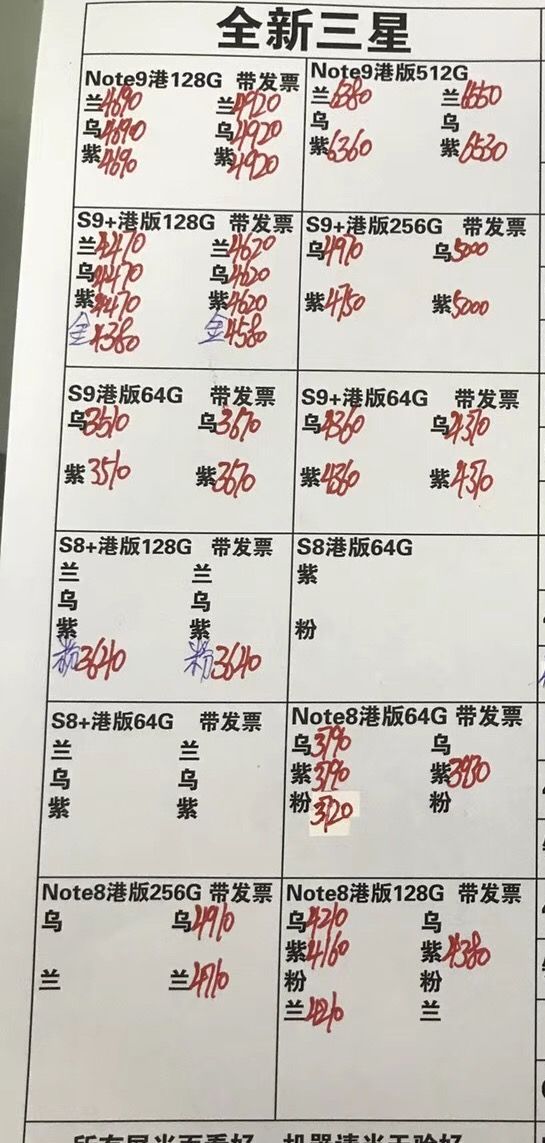 全新三星
Note9港128G 带发票
兰4690 兰4920
乌4690 乌4920
紫4690 紫4920
Note9港版512G
兰6380 兰6550
乌 乌
紫6360 紫6530
S9+港版128G 带发票
兰4470 兰4620
乌4470 乌4620
紫4470 紫4620
金4380 金4580
S9+港版256G 带发票
乌4910 乌5000
紫4750 紫5000
S9港版64G 带发票
乌3510 乌3670
紫3510 紫3670
S9+港版64G 带发票
乌4360 乌4370
紫4360 紫4370
S8+港版128G 带发票
兰 兰
乌 乌
紫 紫
粉3640 粉3640
S8港版64G
紫
粉
S8+港版64G 带发票
兰 兰
乌 乌
紫 紫
Note8港版64G 带发票
乌3790 乌
紫3790 紫3930
粉3720 粉
Note8港版256G 带发票
乌 乌4910
兰 兰4710
Note8港版128G 带发票
乌4210 乌
紫4160 紫4380
粉 粉
兰4210 兰